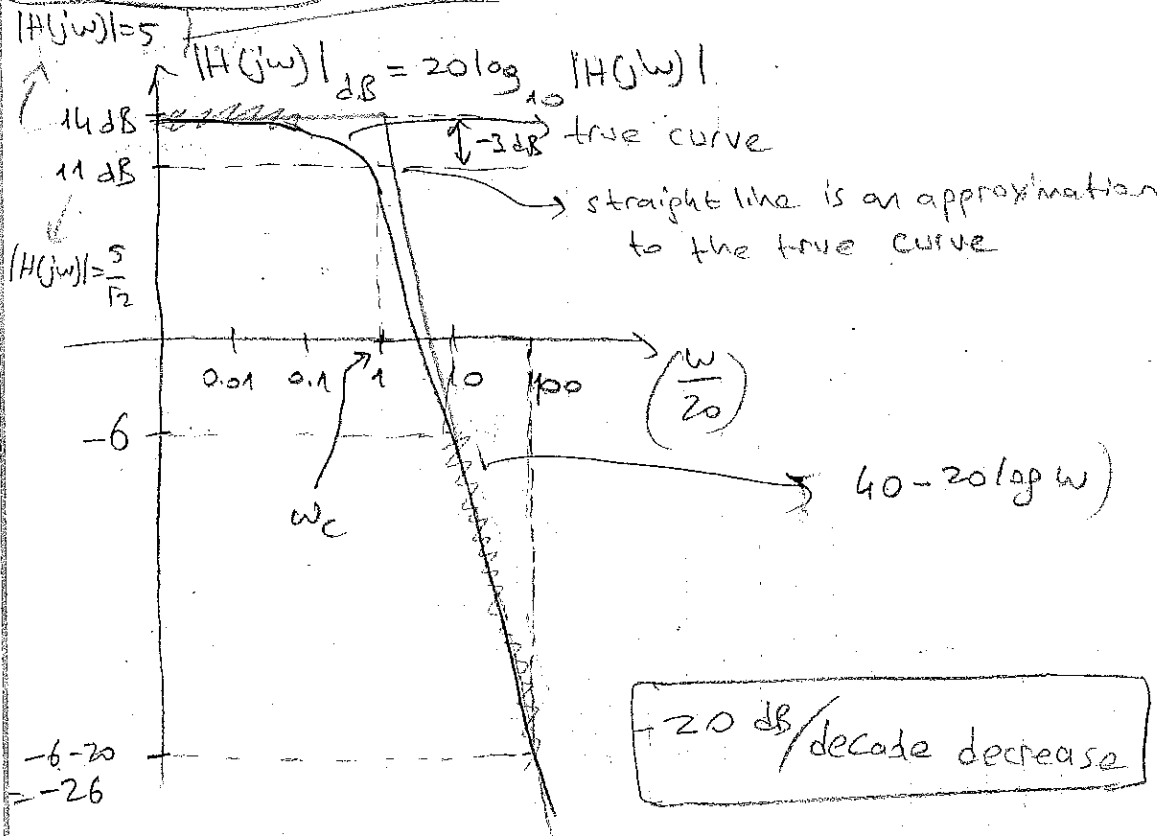 |H(jw)|=5
|H(jw)|dB = 20log10 |H(jw)|
14 dB
-3 dB
true curve
11 dB
straight line is an approximation
to the true curve
|H(jw)|=5/√2
0.01 0.1 1 10 100 (w/20)
-6
40-20log w)
wc
-20 dB/decade decrease
-6-20
=-26